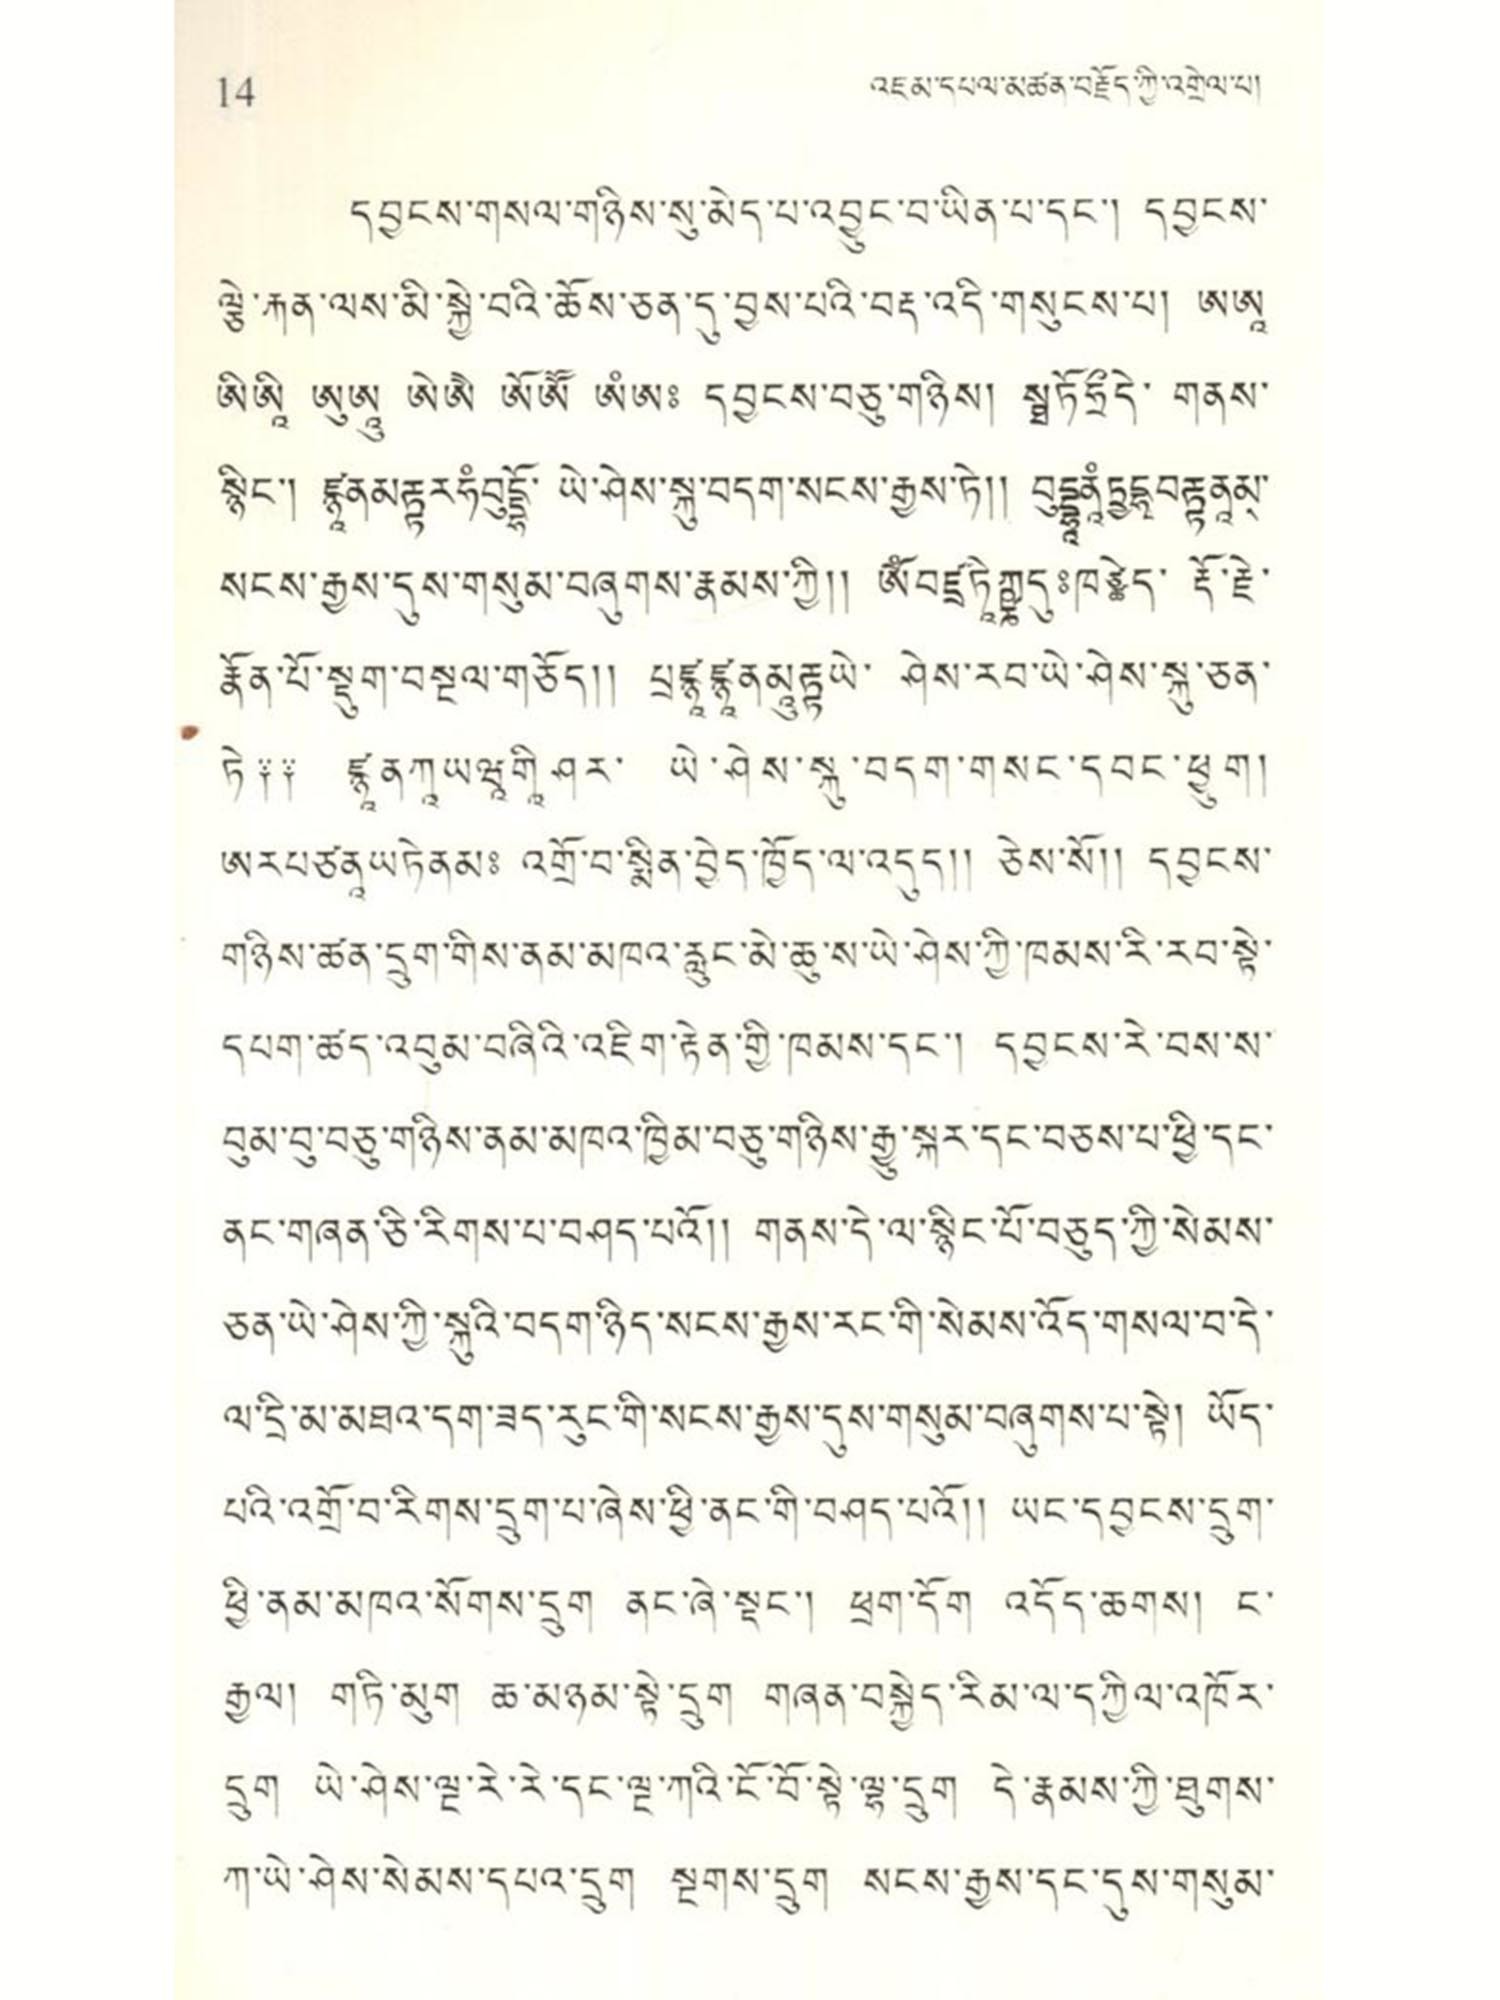 14
འཇམ་དཔལ་མཚན་བརྗོད་ཀྱི་འགྲེལ་པ།
དབྱངས་གསལ་གཉིས་སུ་མེད་པ་འབྱུང་བ་ཡིན་པ་དང་། དབྱངས་
ལྕེ་རྐན་ལས་མི་སྐྱེ་བའི་ཆོས་ཅན་དུ་བྱས་པའི་བརྡ་འདི་གསུངས་པ། ཨཨཱ
ཨིཨཱི ཨུཨཱུ ཨེཨཻ ཨོཨཽ ཨཾཨཿ དབྱངས་བཅུ་གཉིས། སྠིཏོཧྲྀདི་ གནས་
སྙིང་། ཛྙཱནམཱུརྟྟིརཧཾབུདྡྷོ་ ཡེ་ཤེས་སྐུ་བདག་སངས་རྒྱས་ཏེ།། བུདྡྷཱནཱཾཏྲྱདྷྭབརྟྟིནཱམ྄་
སངས་རྒྱས་དུས་གསུམ་བཞུགས་རྣམས་ཀྱི།། ཨོཾབཛྲཏཱིཀྵྞདུཿཁཙྪེད་ རྡོ་རྗེ་
རྣོན་པོ་སྡུག་བསྔལ་གཅོད།། པྲཛྙཱཛྙཱནམཱུརྟྟཡེ་ ཤེས་རབ་ཡེ་ཤེས་སྐུ་ཅན་
ཏེ༑༑ ཛྙཱནཀཱཡཝཱགཱིཤྭར་ ཡེ་ཤེས་སྐུ་བདག་གསང་དབང་ཕྱུག།
ཨརཔཙནཱཡཏེནམཿ འགྲོ་བ་སྨིན་བྱེད་ཁྱོད་ལ་འདུད།། ཅེས་སོ།། དབྱངས་
གཉིས་ཚན་དྲུག་གིས་ནམ་མཁའ་རླུང་མེ་ཆུ་ས་ཡེ་ཤེས་ཀྱི་ཁམས་རི་རབ་སྟེ་
དཔག་ཚད་འབུམ་བཞིའི་འཇིག་རྟེན་གྱི་ཁམས་དང་། དབྱངས་རེ་བས་ས་
བུམ་བུ་བཅུ་གཉིས་ནམ་མཁའ་ཁྱིམ་བཅུ་གཉིས་རྒྱུ་སྐར་དང་བཅས་པ་ཕྱི་དང་
ནང་གཞན་ཅི་རིགས་པ་བཤད་པའོ།། གནས་དེ་ལ་སྙིང་པོ་བཅུད་ཀྱི་སེམས་
ཅན་ཡེ་ཤེས་ཀྱི་སྐུའི་བདག་ཉིད་སངས་རྒྱས་རང་གི་སེམས་འོད་གསལ་བ་དེ་
ལ་དྲི་མ་མཐའ་དག་ཟད་རུང་གི་སངས་རྒྱས་དུས་གསུམ་བཞུགས་པ་སྟེ། ཡོད་
པའི་འགྲོ་བ་རིགས་དྲུག་པ་ཞེས་ཕྱི་ནང་གི་བཤད་པའོ།། ཡང་དབྱངས་དྲུག་
ཕྱི་ནམ་མཁའ་སོགས་དྲུག ནང་ཞེ་སྡང་། ཕྲག་དོག འདོད་ཆགས། ང་
རྒྱལ། གཏི་མུག ཆ་མཉམ་སྟེ་དྲུག གཞན་བསྐྱེད་རིམ་ལ་དཀྱིལ་འཁོར་
དྲུག ཡེ་ཤེས་ལྔ་རེ་རེ་དང་ལྔ་ཀའི་ངོ་བོ་སྟེ་ལྷ་དྲུག དེ་རྣམས་ཀྱི་ཐུགས་
ཀ་ཡེ་ཤེས་སེམས་དཔའ་དྲུག སྔགས་དྲུག སངས་རྒྱས་དང་དུས་གསུམ་